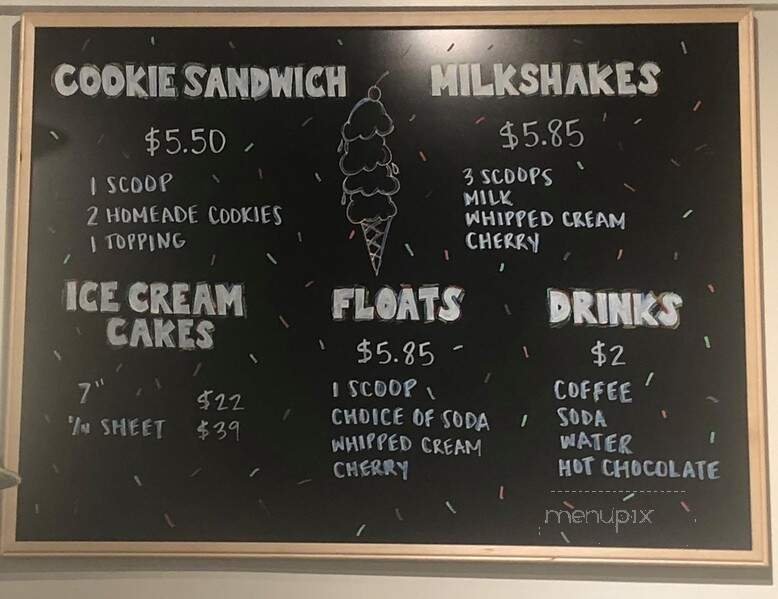 COOKIE SANDWICH
$5.50
1 SCOOP
2 HOMEADE COOKIES
1 TOPPING
MILKSHAKES
$5.85
3 SCOOPS
MILK
WHIPPED CREAM
CHERRY
ICE CREAM
CAKES
7" $22
SHEET $39
FLOATS
$5.85
1 SCOOP
CHOICE OF SODA
WHIPPED CREAM
CHERRY
DRINKS
$2
COFFEE
SODA
WATER
HOT CHOCOLATE
menupix